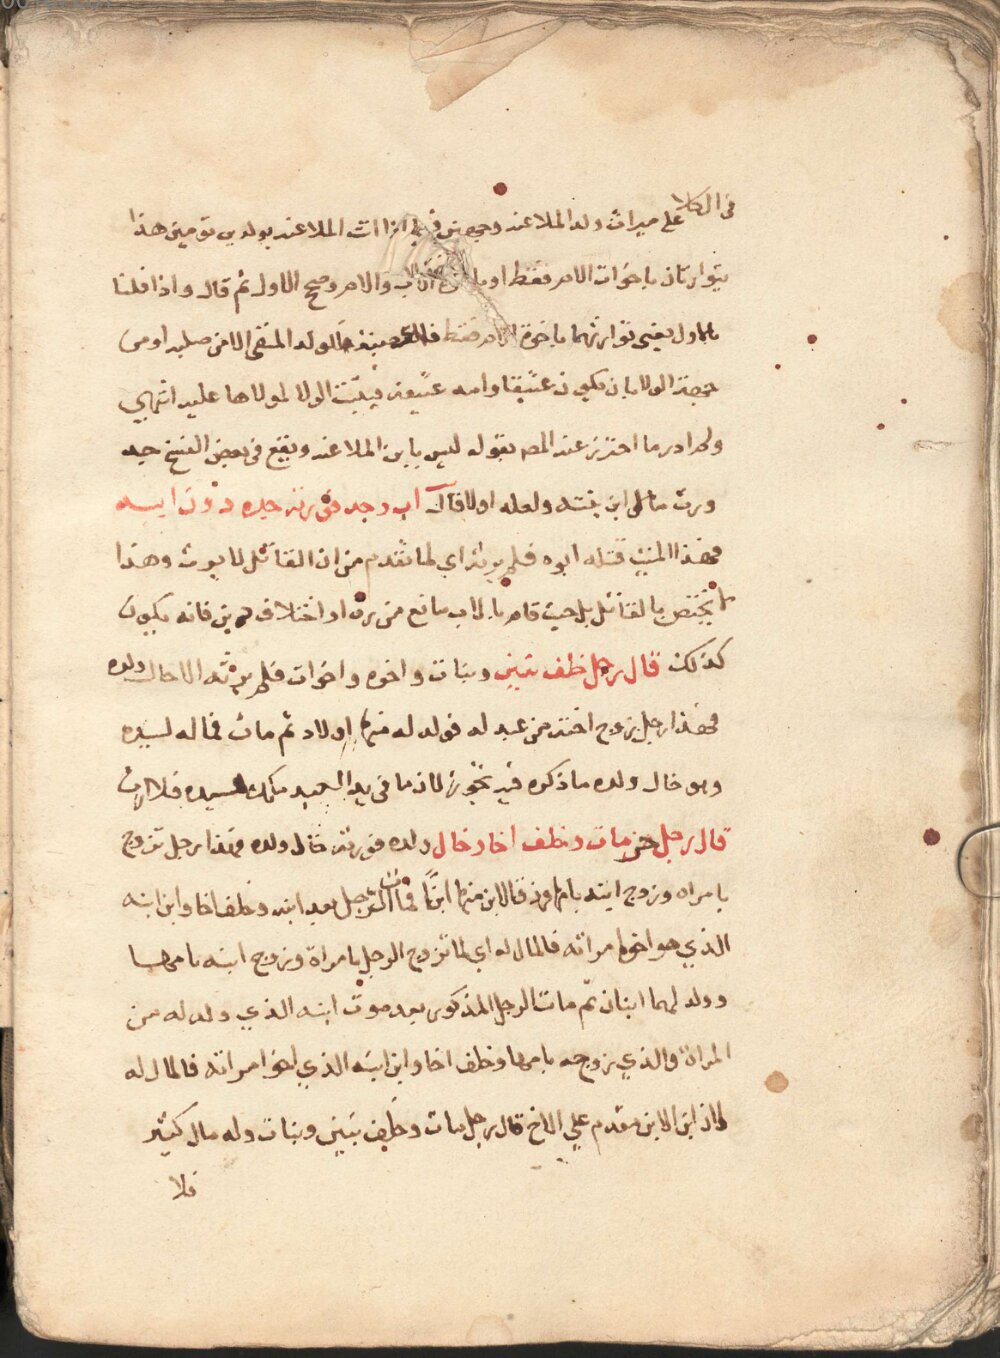 في الكلا على ميراث ولد الملاعنه وجهين فيما اذا اتت الملاعنه بولدين توءمين هذا
يتوارثان باخوات الام فقط او باخوة الاب والام وصح الاول ثم قال واذا قلنا
بالاول يعني توارثهما باخوة الام فقط فالعصبة للولد المنفي الا من صلبه او من
جهة الولا بان يكون عتيقا وامه عتيقة فيثبت الولا لمولاها عليه انتهي
ولمرادر ما احترز عنه المص بقوله ليس بابن الملاعنه ويقع في بعض النسخ حيه
ورث مالي ابن بنته ولعله اولا قال اب وجد فورثه جده دون ابيه
فهذا الميت قتله ابوه فلم يرثه اي لما تقدم من ان القاتل لا يرث وهذا
لا يختص بالقاتل بل حيث قام بالاب مانع من رق او اختلاف دين فانه يكون
كذلك قال رجل خلف بنين وبنات واخوه واخوات فلم يرثه الا خال ولده
فهذا رجل تزوج اخته من عبد له فولد له منها اولاد ثم مات فماله لسيده
وهو خال ولده ما ذكره فيه تجوز لان ما في يد العبد ملك لسيده فلا ارث
قال رجل حر مات وخلف اخا وخال ولده فورثه خال ولده فهذا رجل تزوج
بامراه وزوج ابنه بامها فرزقا لابن منها ابنًا فمات المتزوجل بعد ابنه وخلف اخا وابن ابنه
الذي هو اخو امراته فالمال له اي لما تزوج الرجل بامراة وزوج ابنه بامها
وولد لهما ابنان ثم مات الرجل المذكور بعد موت ابنه الذي ولد له من
المراة والذي زوجه بامها وخلف اخا وابن ابنه الذي اخو امراته فالمال له
لان ابن الابن مقدم علي الاخ قال رجل مات وخلف بنين وبنات وله مال كثير
فلا